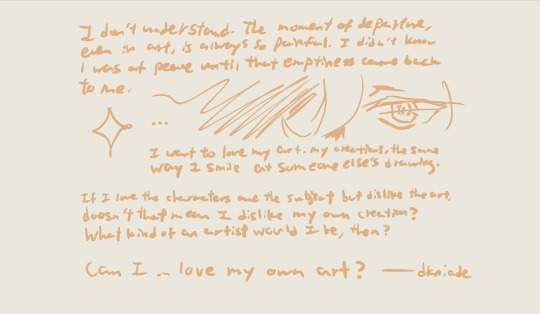 I don't understand. The moment of departure,
even in art, is always so painful. I didn't know
I was at peace until that emptiness came back
to me.
...
I want to love my art. my creations, the same
way I smile at someone else's drawing.
If I love the characters and the subject but dislike the art,
doesn't that mean I dislike my own creation?
What kind of an artist would I be, then?
Can I ... love my own art? — dkniade